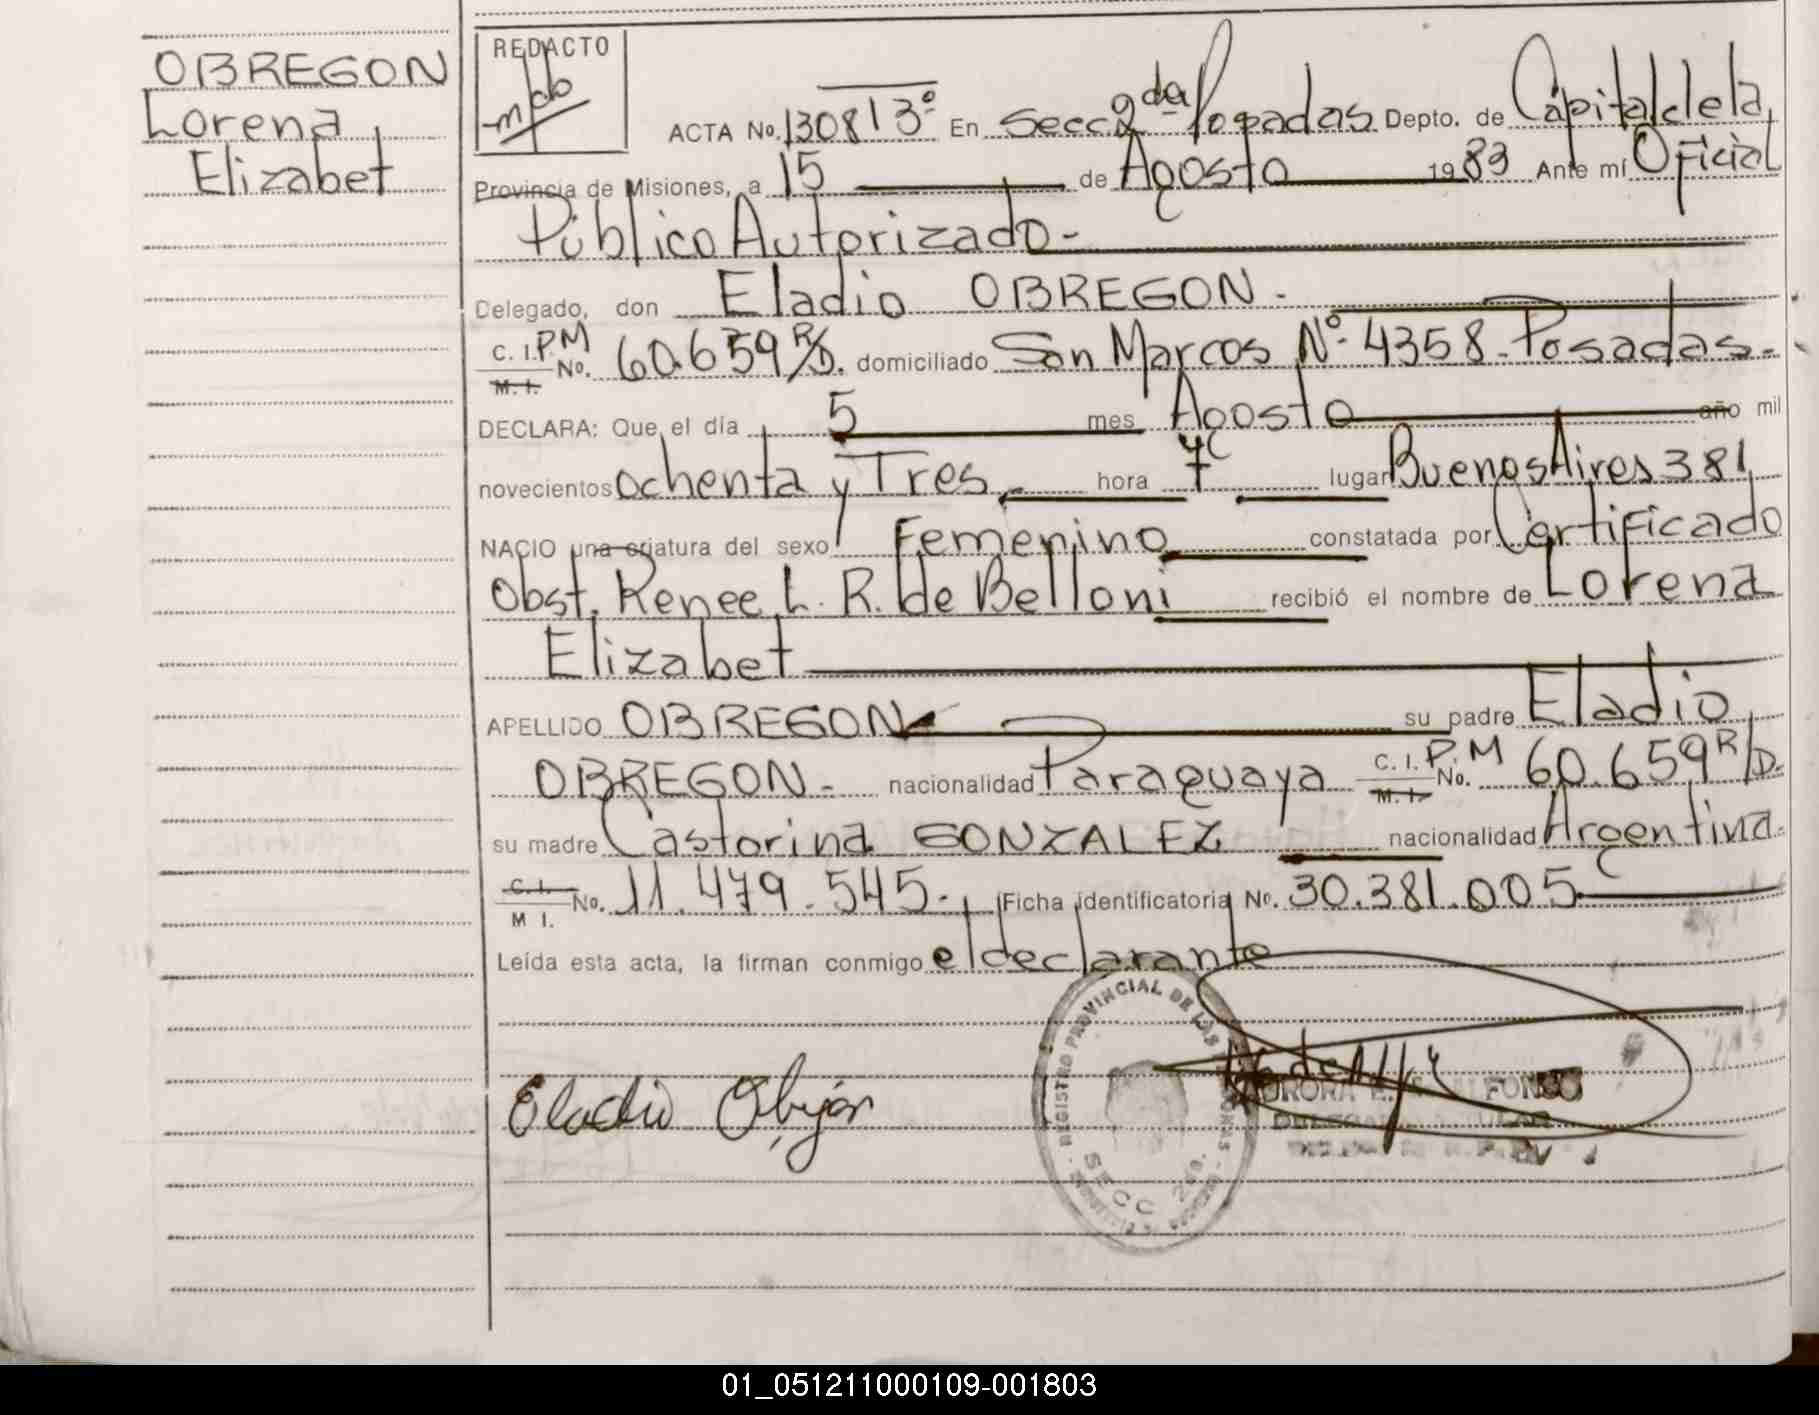 OBREGON
Lorena
Elizabet
REDACTO
ACTA No. 1308 13º En Secc 2da Posadas Depto. de Capital de la
Provincia de Misiones, a 15 de Agosto 1983 Ante mí Oficial
Público Autorizado -
Delegado, don Eladio OBREGON -
C. I. P.M No. 60.659 R/D. domiciliado San Marcos Nº 4358 - Posadas -
M. I.
DECLARA: Que el día 5 mes Agosto año mil
novecientos ochenta y Tres hora 7 lugar Buenos Aires 381
NACIO una criatura del sexo Femenino constatada por Certificado
Obst. Renee L. R. de Belloni recibió el nombre de Lorena
Elizabet
APELLIDO OBREGON su padre Eladio
OBREGON - nacionalidad Paraguaya C. I. P.M No. 60.659 R/D.
M. I.
su madre Castorina GONZALEZ nacionalidad Argentina
C. I.
M I. No. 11.479.545 - Ficha identificatoria No. 30.381.005
Leída esta acta, la firman conmigo el declarante
REGISTRO PROVINCIAL DE LAS
SECC 2da.
Eladio Obregón
01_051211000109-001803